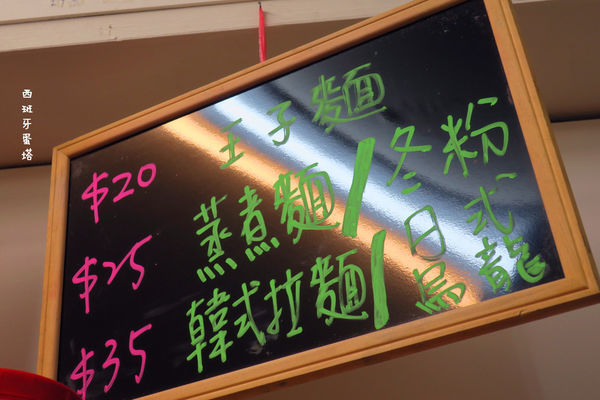 西班牙蛋塔
$20 王子麵
$25 蒸煮麵/冬粉
$35 韓式拉麵/日式烏龍